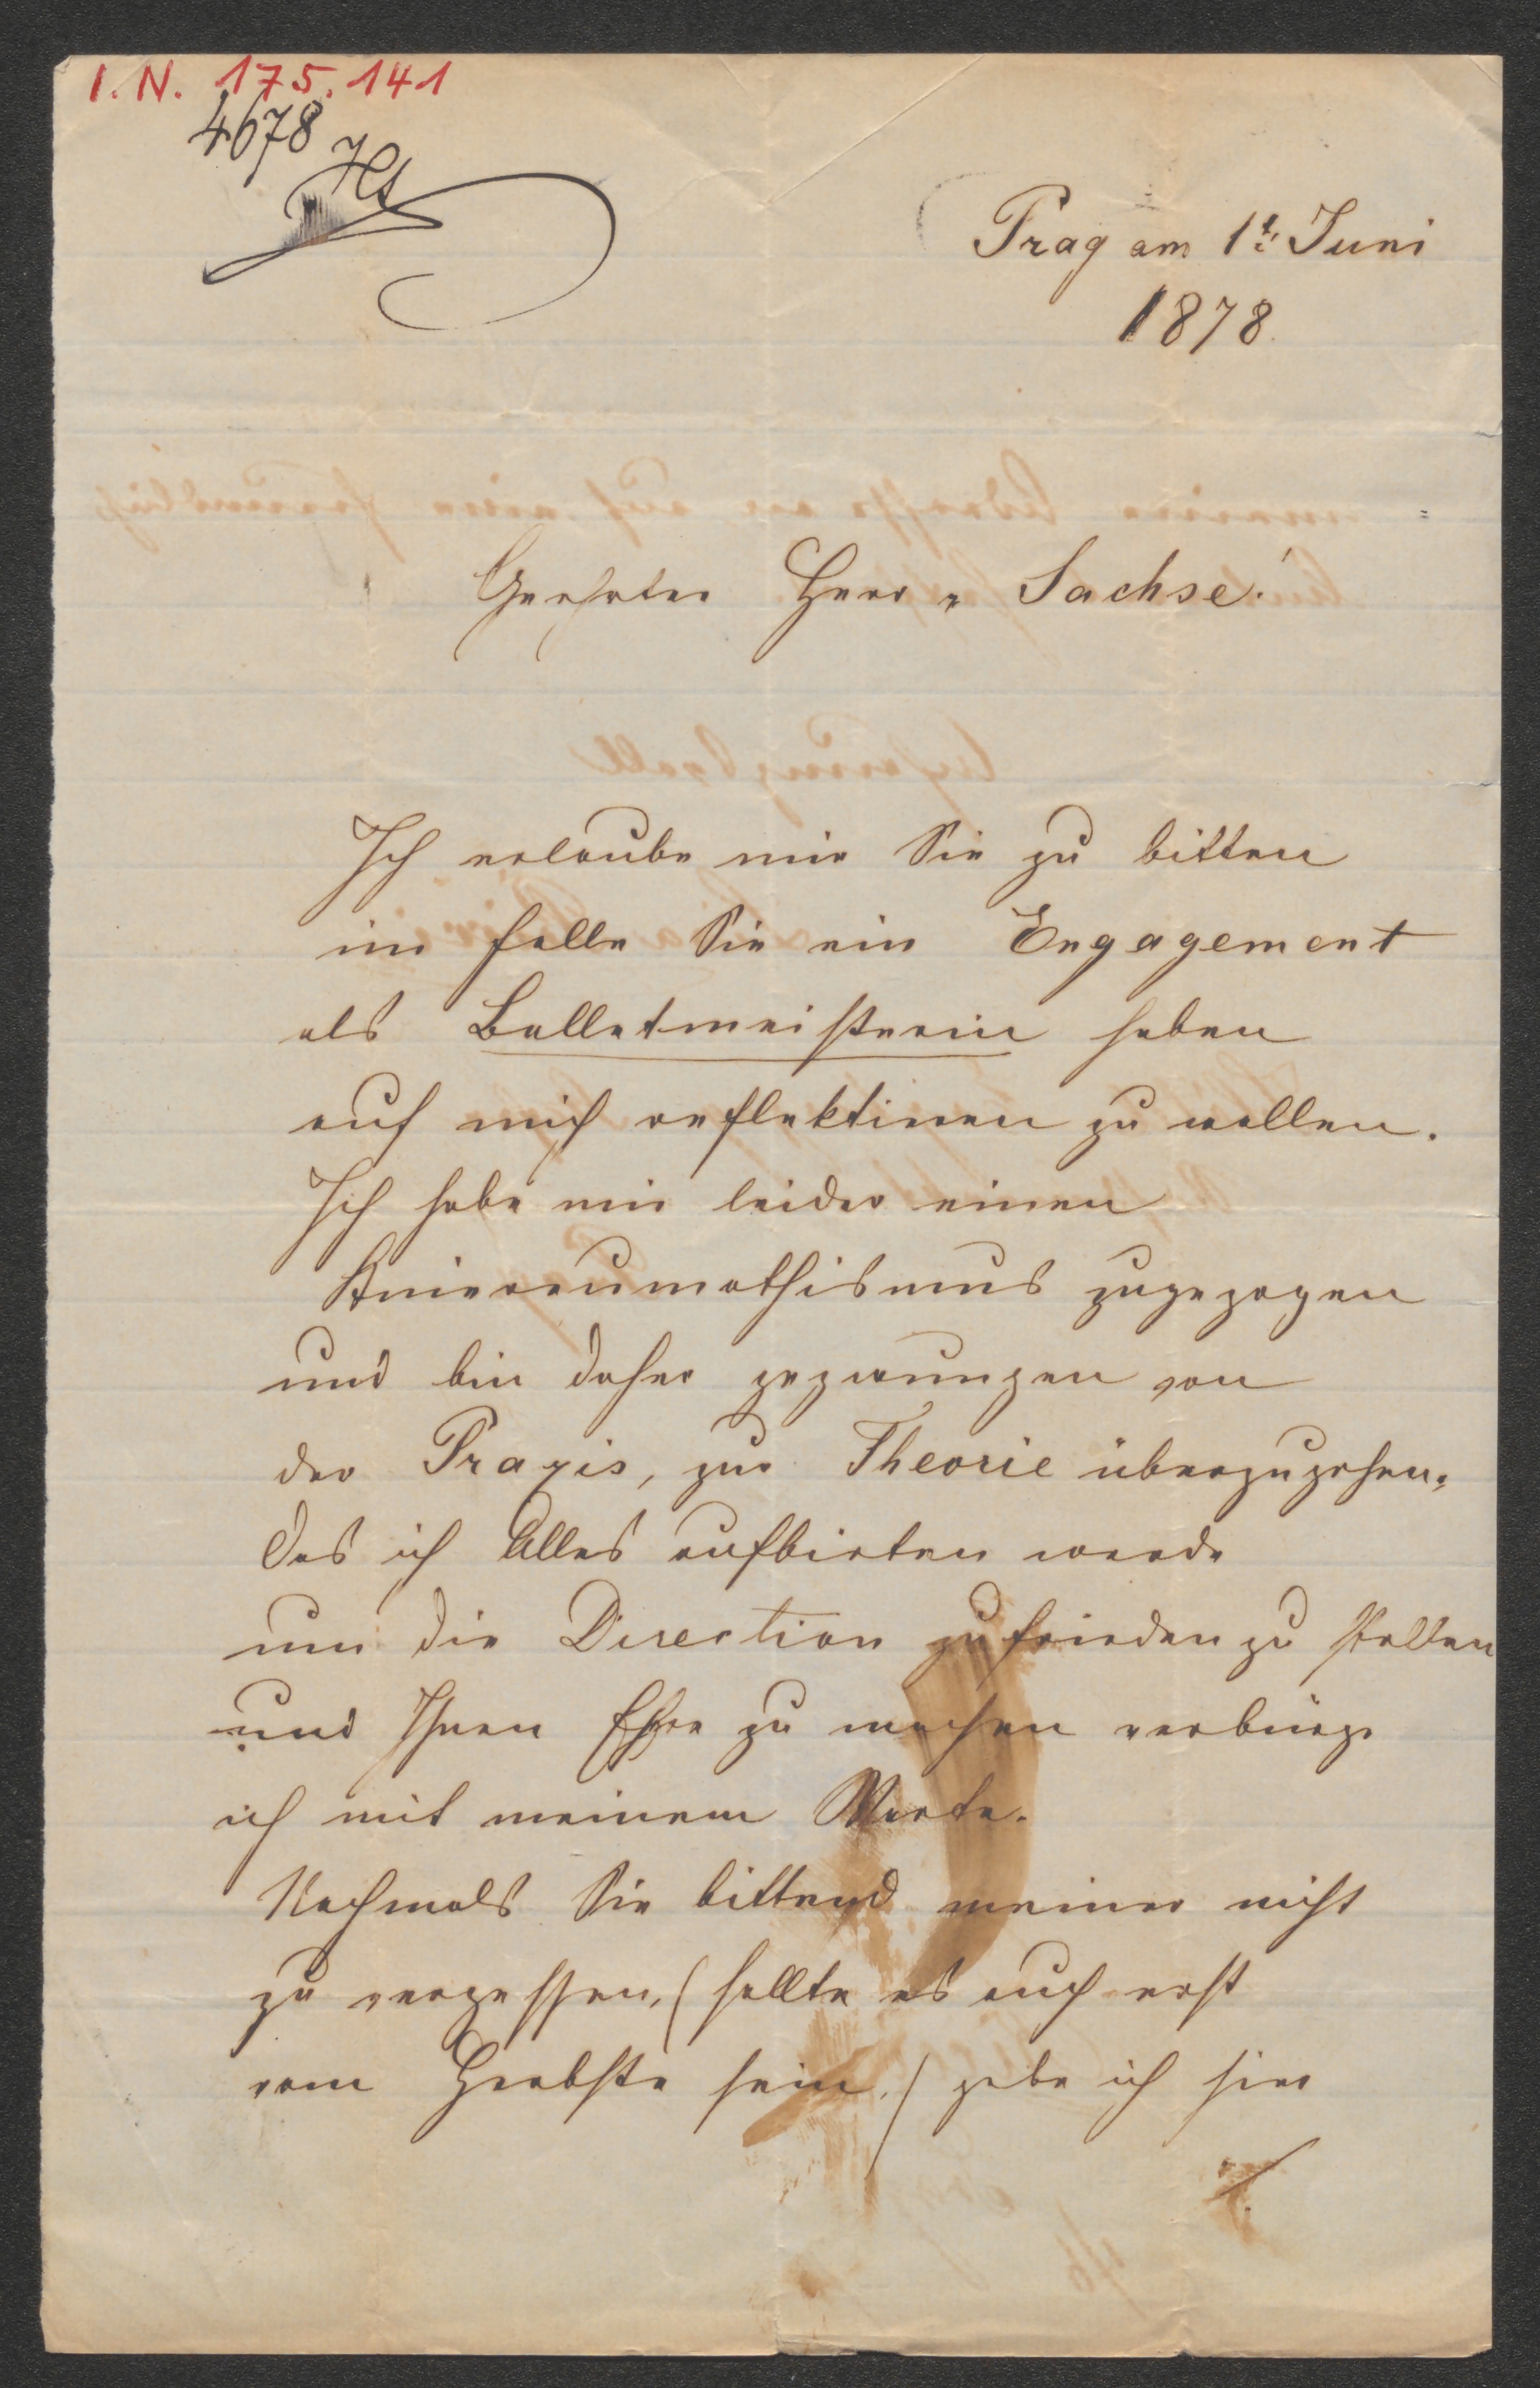 I. N. 175.141
4678
Prag am 1t. Juni
1878.
Geehrter Herr v Sachse!
Ich erlaube mir Sie zu bitten
im Falle Sie ein Engagement
als Balletmeisterin haben
auf mich reflektiren zu wollen.
Ich habe mir leider einen
Kniereumathismus zugezogen
und bin daher gezwungen von
der Praxis, zur Theorie überzugehen,
das ich Alles aufbieten werde
um die Direction zufrieden zu stellen
und Ihnen Ehre zu machen verbürge
ich mit meinem Worte.
Nochmals Sie bittend meiner nicht
zu vergessen, (sollte es auch erst
vom Herbste sein.) gebe ich hier